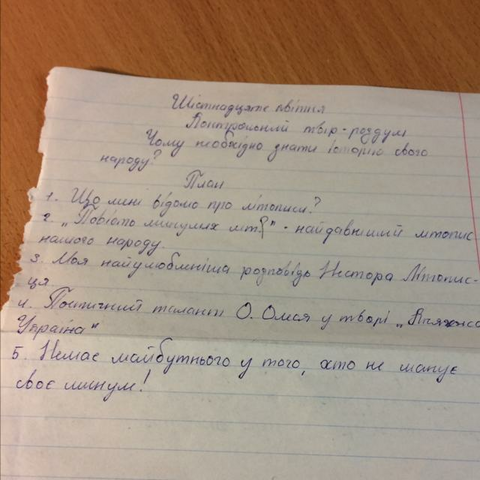 Шістнадцяте квітня
Контрольний твір-роздум
Чому необхідно знати історію свого
народу?
План
1. Що мені відомо про літописи?
2. „Повість минулих літ" - найдавніший літопис
нашого народу.
3. Моя найулюбленіша розповідь Нестора Літопис-
ця.
4. Поетичний талант О. Олеся у творі „Княжа
Україна"
5. Немає майбутнього у того, хто не шанує
своє минуле!